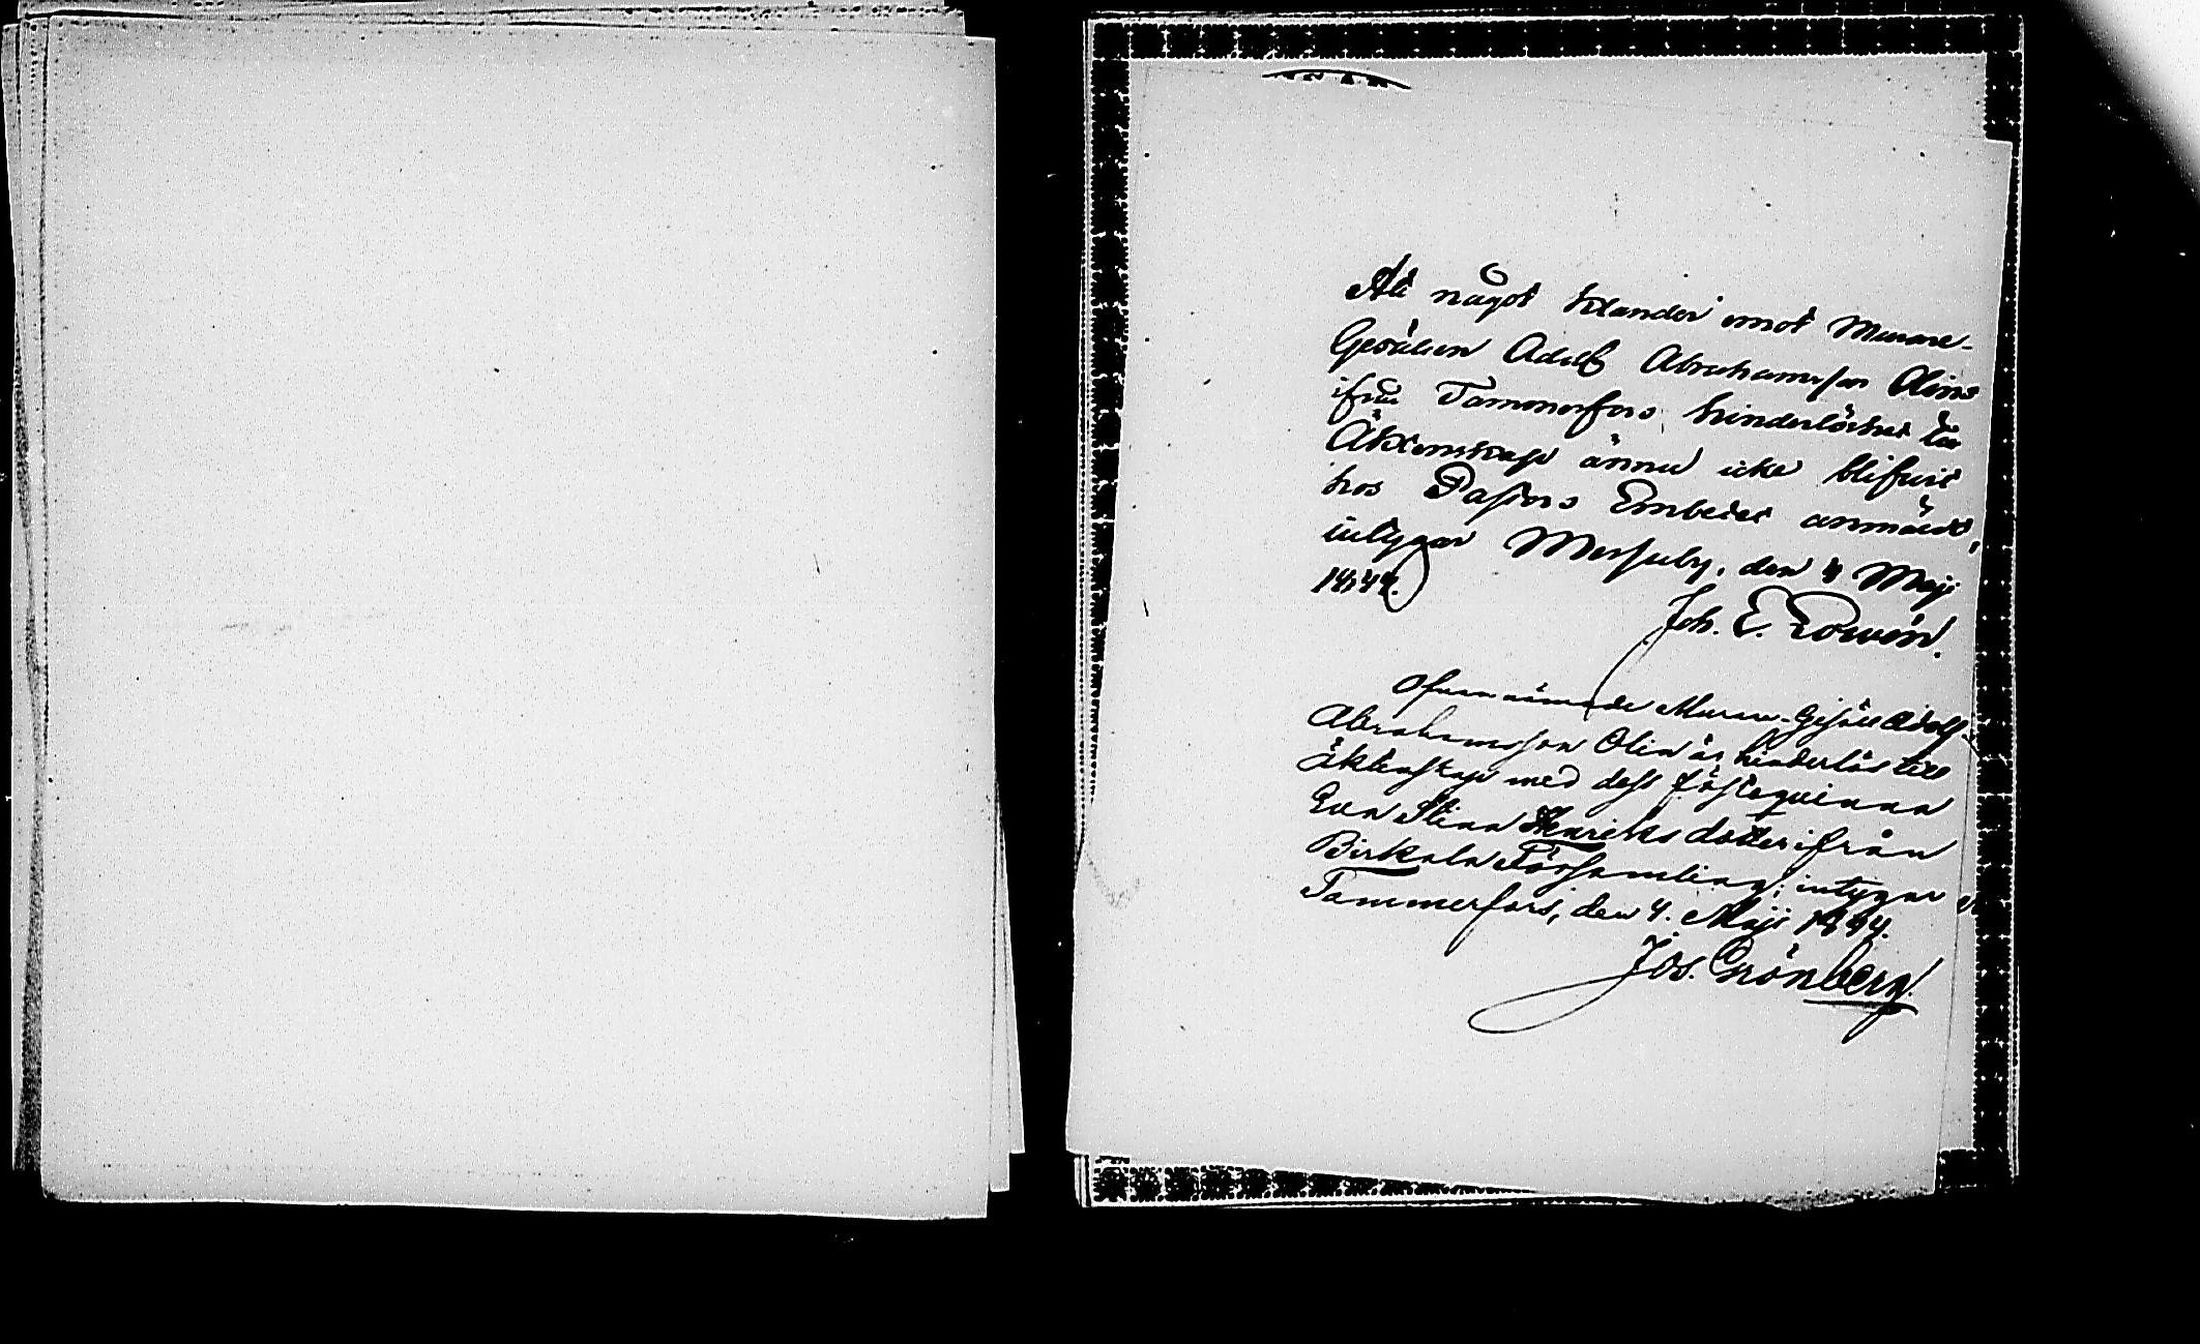 Att något klander emot Murare-
Gesällen Adolf Abrahamsson Olins
ifrån Tammerfors, hinderlöshet till
Äktenskap ännu icke blifvit
hos Pastors Embetet anmäldt,
intygar Messuby, den 4 Maji
1844.
Joh. E.
Ofvannämnde Murare-Gesäll Adolf
Abrahamsson Olin är hinderlös till
äktenskap med dess fästeqvinna
Eva Stina Henriks dotter ifrån
Birkala Församling; intygar
Tammerfors, den 4. Maji 1844.
Jos. Grönberg.